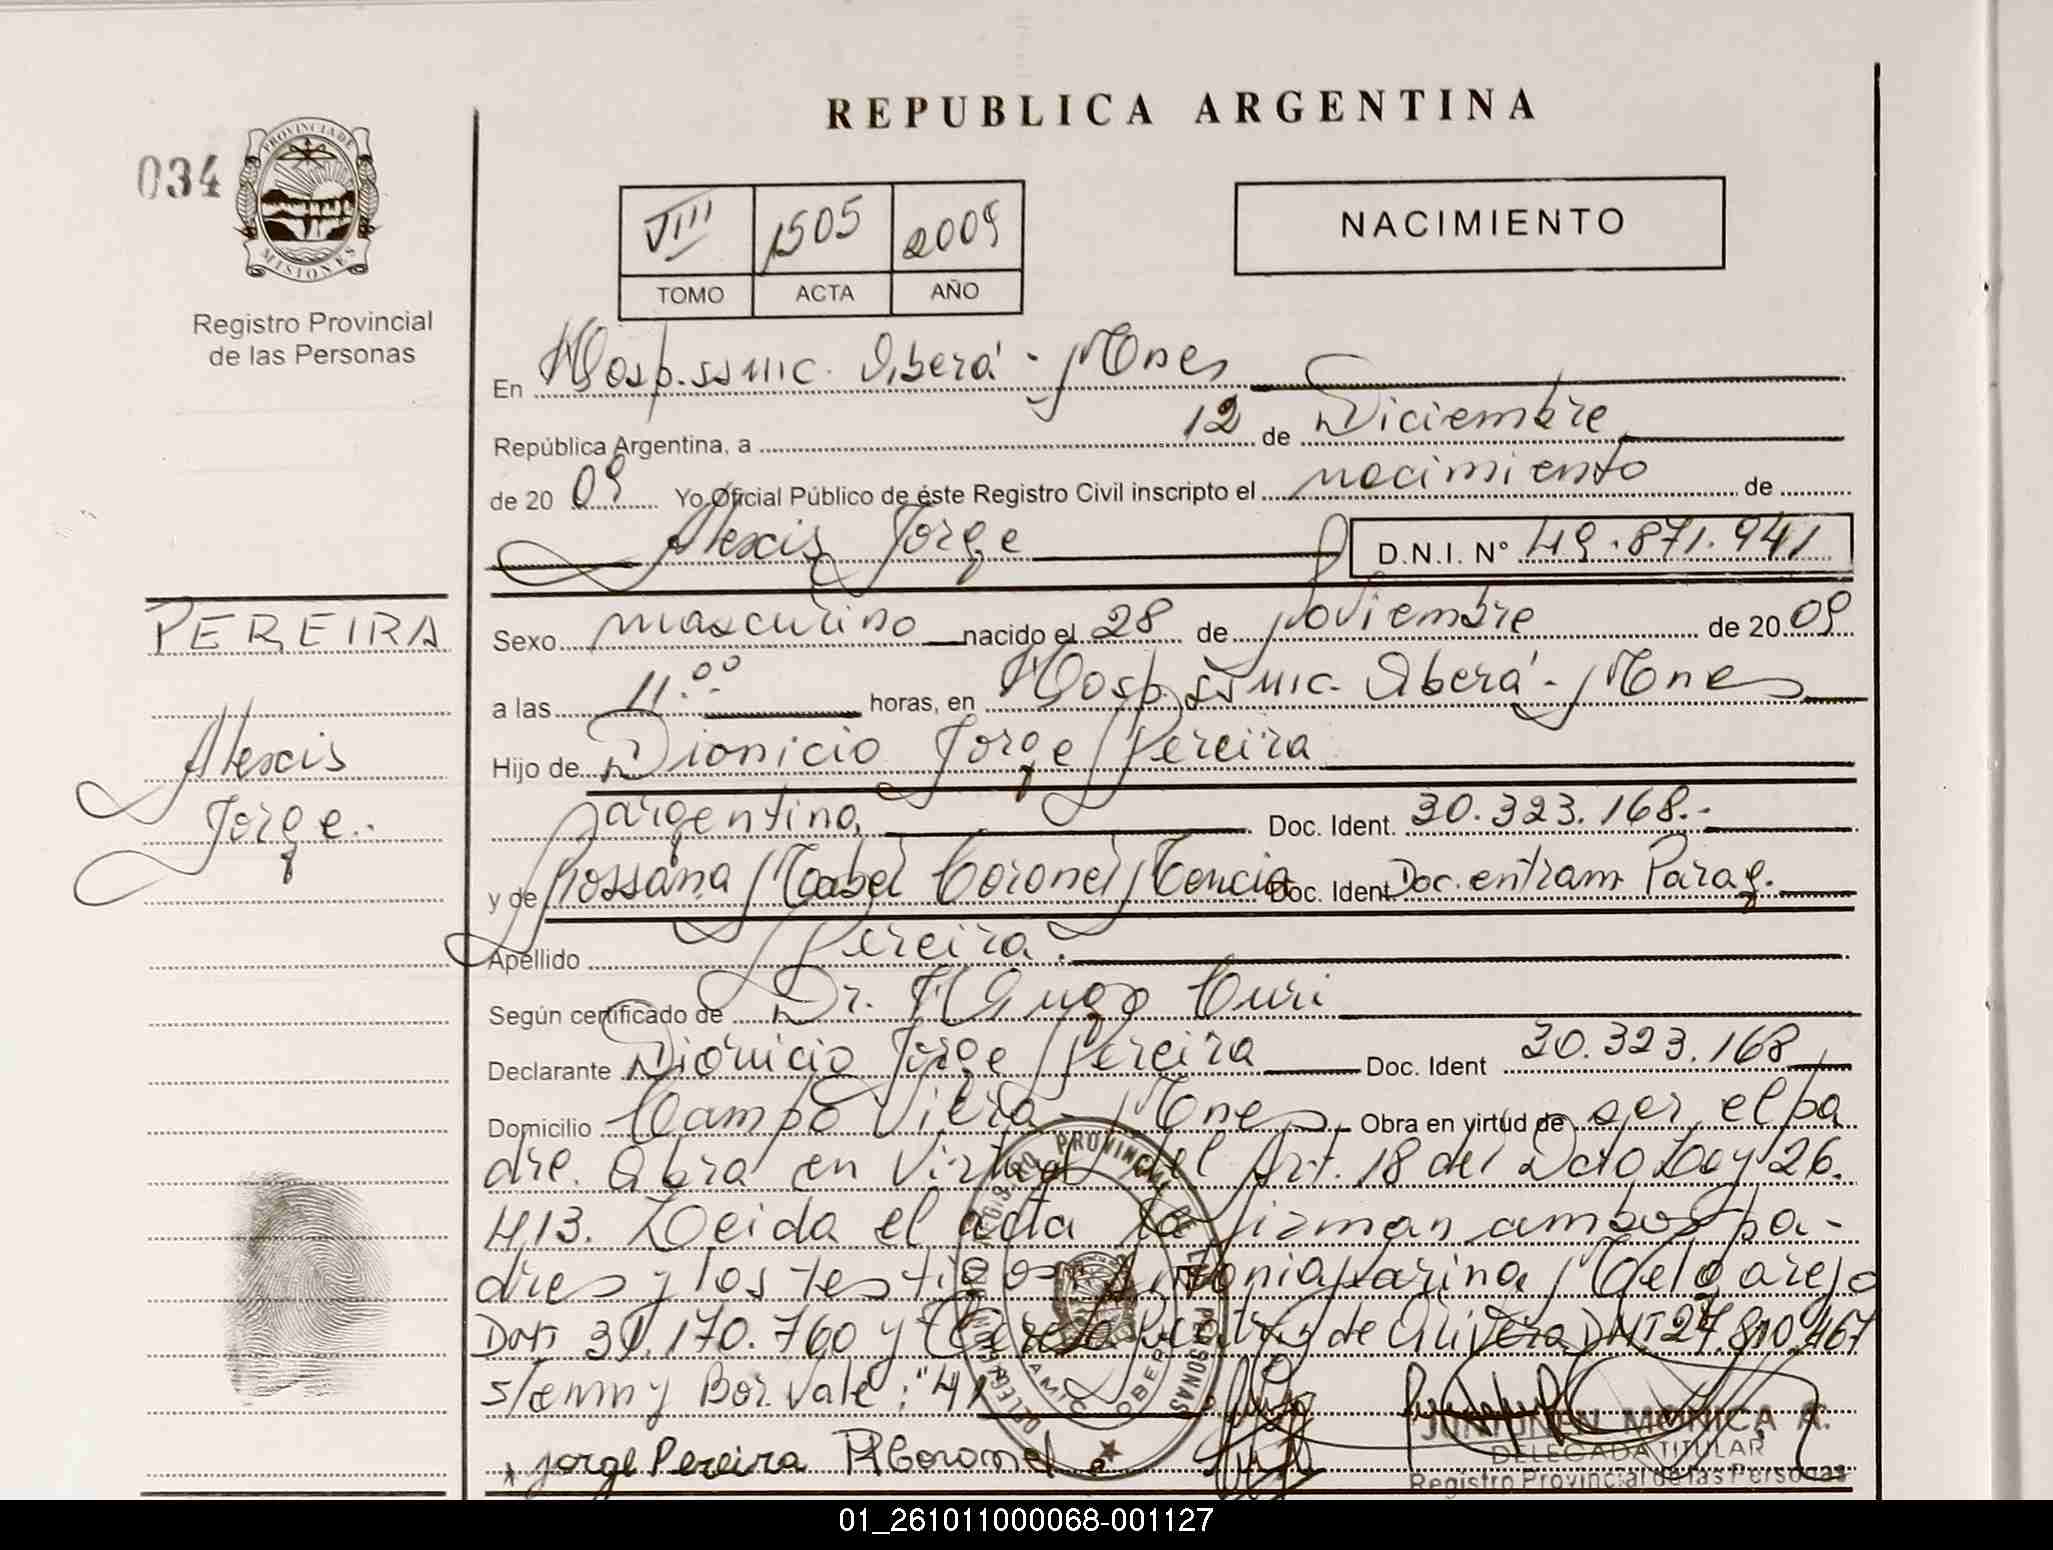 REPUBLICA ARGENTINA
034
PROVINCIA DE
MISIONES
Registro Provincial
de las Personas
VIII 1505 2009
TOMO ACTA AÑO
NACIMIENTO
En Hosp. SSMIC. Oberá - Mnes
República Argentina, a 12 de Diciembre
de 20 09 Yo Oficial Público de éste Registro Civil inscripto el nacimiento de
Alexis Jorge D.N.I. N° 49.871.941
PEREIRA
Alexis
Jorge.-
Sexo masculino nacido el 28 de Noviembre de 20 09
a las 11.00 horas, en Hosp. SSMIC. Oberá - Mnes
Hijo de Dionicio Jorge Pereira
argentino, Doc. Ident. 30.323.168.-
y de Rossana Mabel Coronel Mencia Doc. Ident. Doc. entram Parag.
Apellido Pereira.
Según certificado de Dr. Hugo Curi
Declarante Dionicio Jorge Pereira Doc. Ident 30.323.168
Domicilio Campo Viera - Mnes Obra en virtud de ser el pa
dre. Obra en virtud del Art. 18 del Dcto Ley 26.
413. Leida el acta la firman ambos pa-
dres y los testigos Antonia Karina Melgarejo
170.760 y de Olivera DNI 27.810.467
s/enm y Bor. Vale: "4"
Jorge Pereira R Coronel
REGISTRO PROVINCIAL DE LAS PERSONAS
OBERA
JUNTUNEN MONICA A.
DELEGADA TITULAR
Registro Provincial de las Personas
01_261011000068-001127